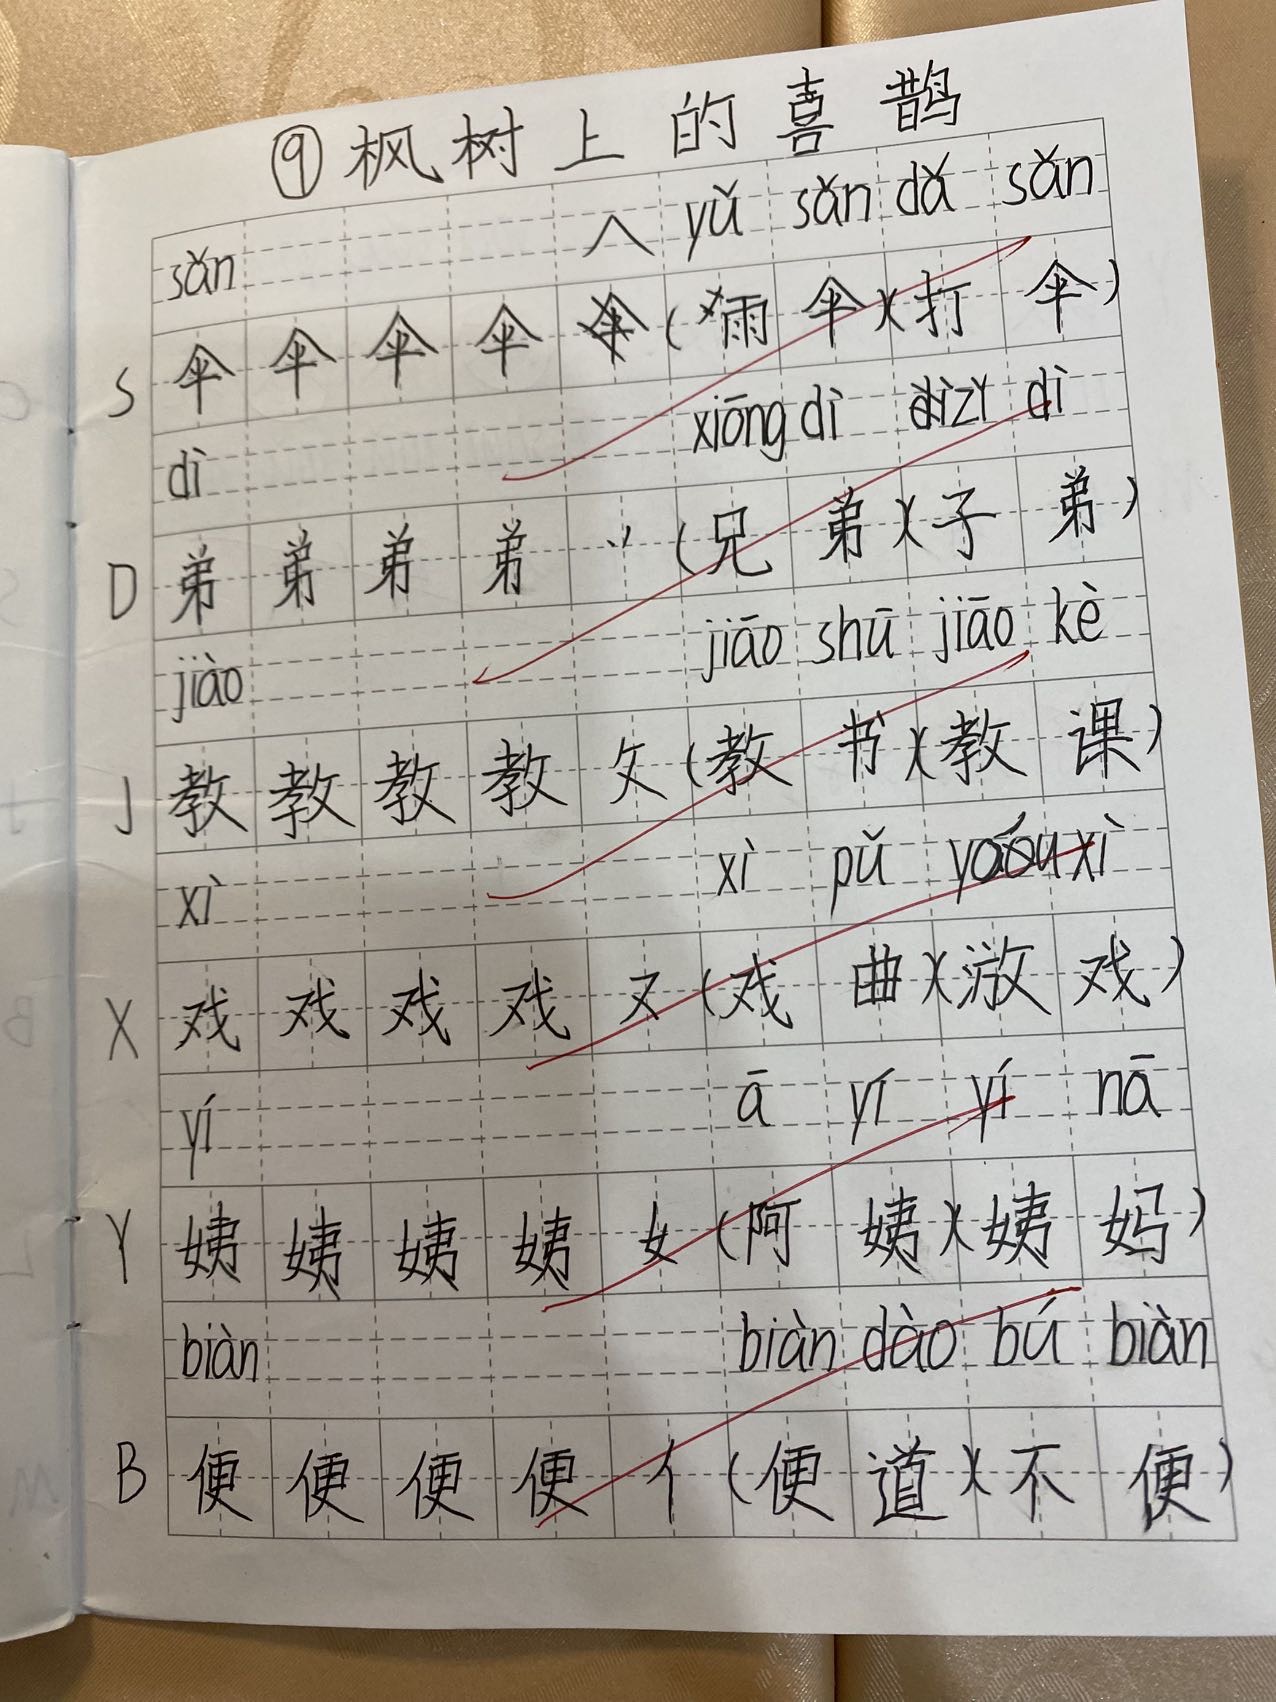 ⑨枫树上的喜鹊
sǎn 人 yǔ sǎn dǎ sǎn
S 伞 伞 伞 伞 (雨 伞)(打 伞)
dì xiōng dì zǐ dì
D 弟 弟 弟 弟 丷 (兄 弟)(子 弟)
jiào jiāo shū jiāo kè
J 教 教 教 教 攵 (教 书)(教 课)
xì xì pǔ yóu xì
X 戏 戏 戏 戏 又 (戏 曲)( 戏)
yí ā yí yí nā
Y 姨 姨 姨 姨 女 (阿 姨)(姨 妈)
biàn biàn dào bú biàn
B 便 便 便 便 亻 (便 道)(不 便)